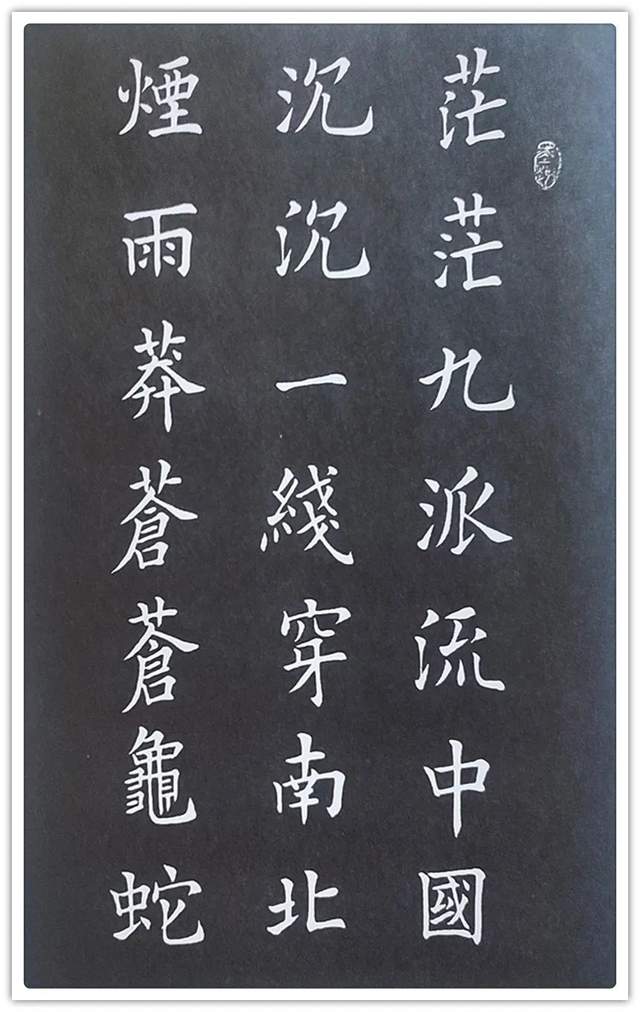 茫茫九派流中國
沉沉一綫穿南北
煙雨莽蒼蒼龜蛇